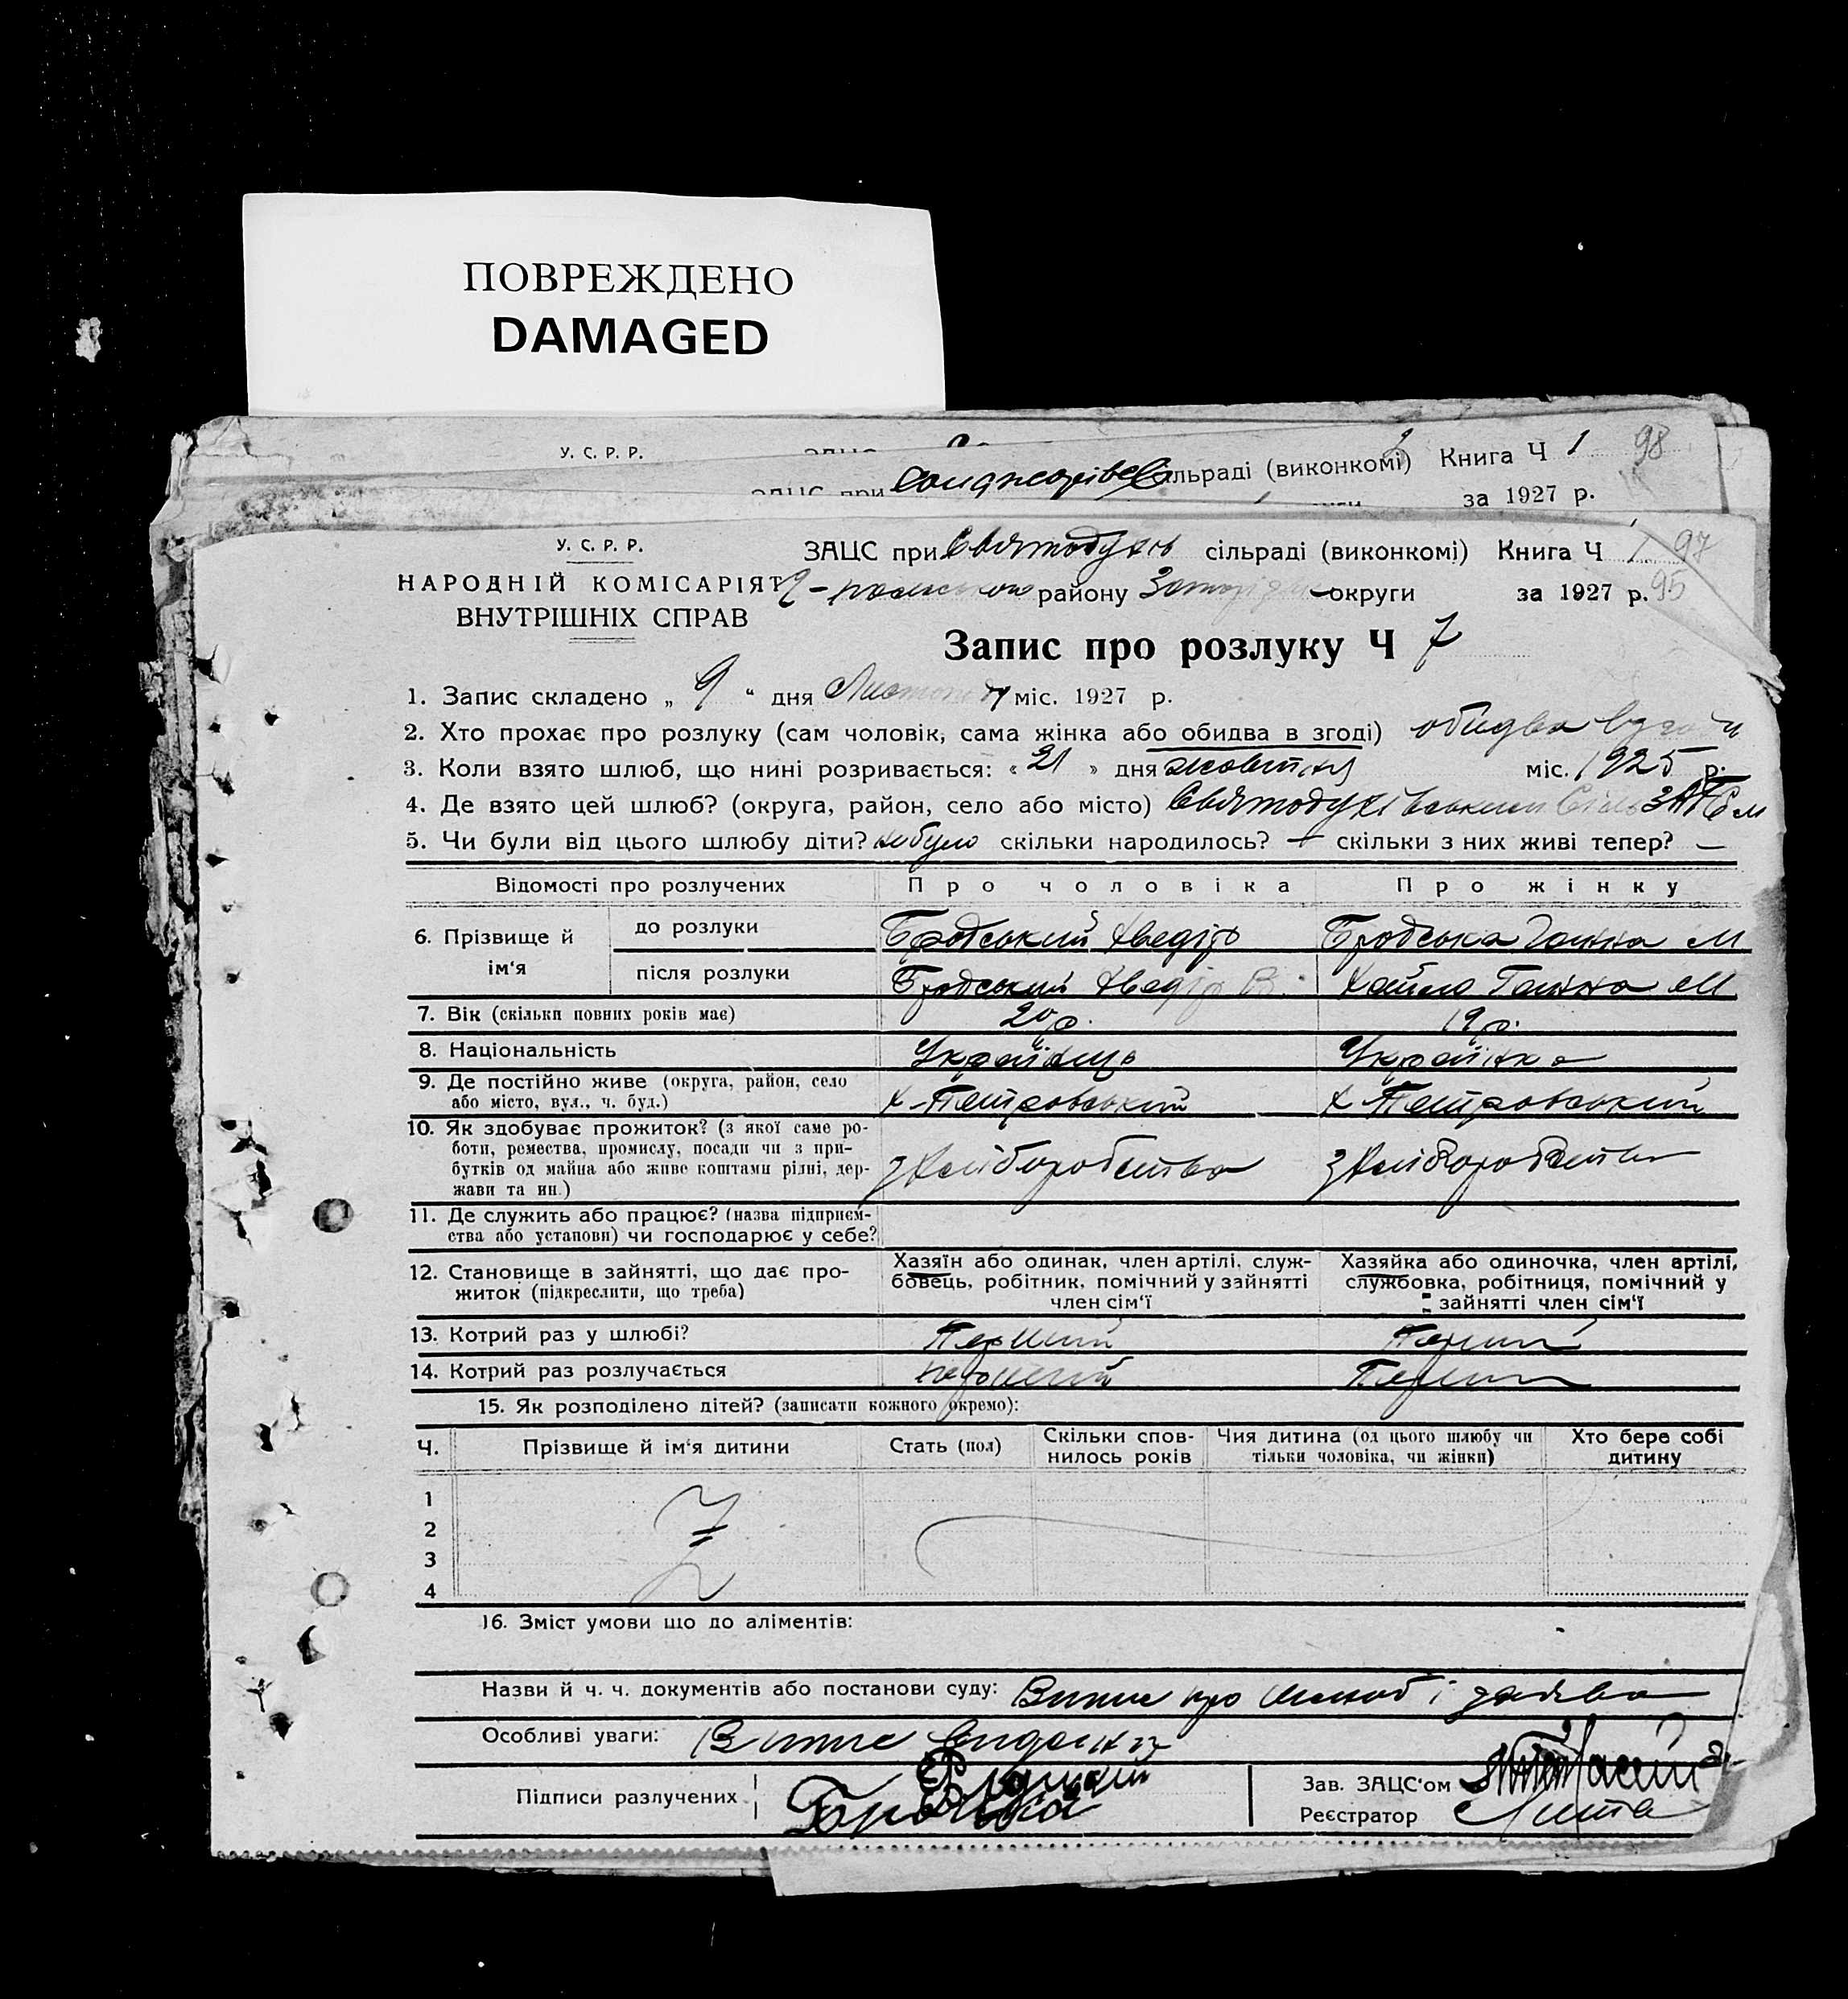 ПОВРЕЖДЕНО
DAMAGED
У. С. Р. Р.
сільраді (виконкомі) Книга Ч 1 98
ЗАЦС при
за 1927 р.
У. С. Р. Р.
ЗАЦС при Святодухів сільраді (виконкомі) Книга Ч 1 97
НАРОДНІЙ КОМІСАРІЯТ
району округи за 1927 р. 95
ВНУТРІШНІХ СПРАВ
Запис про розлуку Ч 7
1. Запис складено „ 9 “ дня Листопаду міс. 1927 р.
2. Хто прохає про розлуку (сам чоловік, сама жінка або обидва в згоді) обидва в згоди
3. Коли взято шлюб, що нині розривається: « 21 » дня жовтня міс. 1925 р.
4. Де взято цей шлюб? (округа, район, село або місто) Святодухівським
5. Чи були від цього шлюбу діти? небуло скільки народилось? — скільки з них живі тепер? —
Відомості про розлучених Про чоловіка Про жінку
6. Прізвище й ім‘я
до розлуки Бродський Хведір Бродська Ганна М
після розлуки Бродський Хведір В. Хайло Ганна М
7. Вік (скільки повних років має) 20 р. 19 р.
8. Національність Українець Українка
9. Де постійно живе (округа, район, село Х-Петровський Х-Петровський
або місто, вул., ч. буд.)
10. Як здобуває прожиток? (з якої саме ро-
боти, ремества, промислу, посади чи з при- з Хліборобства з Хліборобства
бутків од майна або живе коштами рідні, дер-
жави та ин.)
11. Де служить або працює? (назва підприєм-
ства або установи) чи господарює у себе?
12. Становище в зайнятті, що дає про-
житок (підкреслити, що треба)
Хазяїн або одинак, член артілі, служ-
бовець, робітник, помічний у зайнятті
член сім‘ї
Хазяйка або одиночка, член артілі,
службовка, робітниця, помічний у
зайнятті член сім‘ї
13. Котрий раз у шлюбі? Перший Перший
14. Котрий раз розлучається перший Перший
15. Як розподілено дітей? (записати кожного окремо):
Ч. Прізвище й ім‘я дитини Стать (пол) Скільки спов-нилось років Чия дитина (од цього шлюбу чи тільки чоловіка, чи жінки) Хто бере собі дитину
1
2
3
4
16. Зміст умови що до аліментів:
Назви й ч. ч. документів або постанови суду: Випис про шлюб і заява
Особливі уваги: Випис видани
Підписи разлучених Зав. ЗАЦС‘ом
Реєстратор